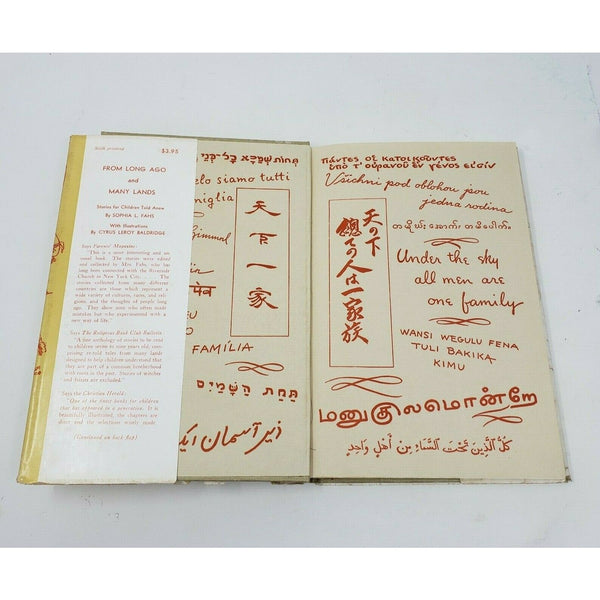 Sixth printing $3.95
FROM LONG AGO
and
MANY LANDS
Stories for Children Told Anew
By SOPHIA L. FAHS
With Illustrations
By CYRUS LEROY BALDRIDGE
Says Parents' Magazine:
"This is a most interesting and un-
usual book. The stories were edited
and collected by Mrs. Fahs, who has
long been connected with the Riverside
Church in New York City. . . . The
stories collected from many different
countries are those which represent a
wide variety of cultures, races, and reli-
gions, and the thoughts of people long
ago. They show men who often made
mistakes but who experimented with a
new way of life."
Says The Religious Book Club Bulletin:
"A fine anthology of stories to be told
to children seven to nine years old, com-
prising re-told tales from many lands
designed to help children understand that
they are part of a common brotherhood
with roots in the past. Stories of witches
and fairies are excluded."
Says the Christian Herald:
"One of the finest books for children
that has appeared in a generation. It is
beautifully illustrated, the chapters are
direct and the selections wisely made.
(Continued on back flap)
elo siamo tutti
miglia
Himmel
天下一家
FAMÍLIA
תַּחַת הַשָּׁמַיִם
زیر آسمان
πάντες οἱ κατοικοῦντες
ὑπὸ τ' οὐρανοῦ ἓν γένος εἰσίν
Všichni pod oblohou jsou
jedna rodina
天の下
總ての人は一家族
Under the sky
all men are
one family
WANSI WEGULU FENA
TULI BAKIKA
KIMU
மனுகுலமொன்றே
كُلُّ الَّذِينَ تَحْتَ السَّمَاءِ مِنْ أَهْلٍ وَاحِدٍ